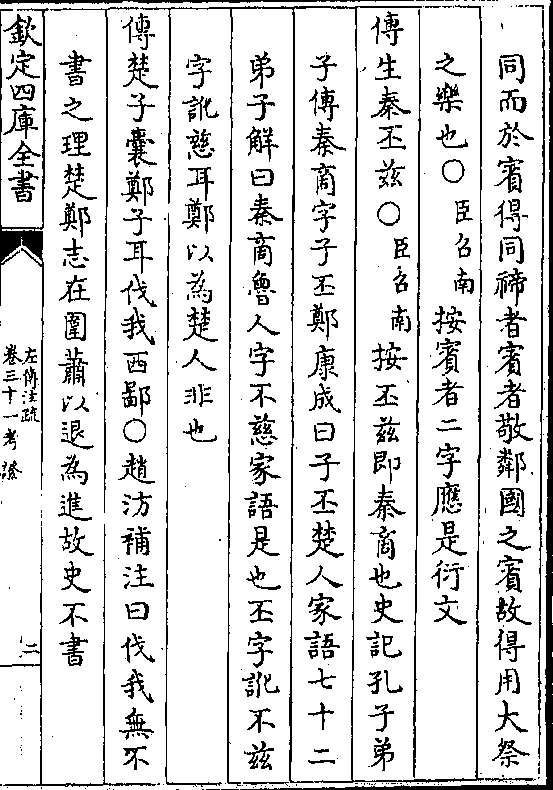 同而於賓得同禘者賓者敬鄰國之賓故得用大祭
之樂也○臣召南按賓者二字應是衍文
傳生秦丕茲○臣召南按丕茲即秦商也史記孔子弟
子傳秦商字子丕鄭康成曰子丕楚人家語七十二
弟子解曰秦商魯人字不慈家語是也丕字訛不茲
字訛慈耳鄭以為楚人非也
傳楚子囊鄭子耳伐我西鄙○趙汸補注曰伐我無不
書之理楚鄭志在圍蕭以退為進故史不書
欽定四庫全書
左傳注疏
卷三十一考證
二